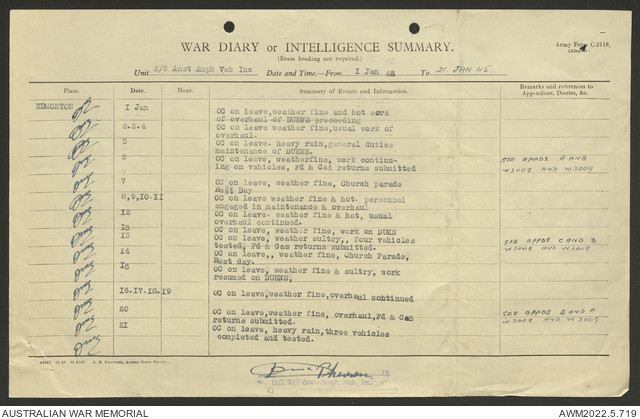 WAR DIARY or INTELLIGENCE SUMMARY.
(Erase heading not required.)
Army Form C.2118.
Unit 2/3 Aust Amph Veh Inc Date and Time.—From 1 Jan 45 To 21 JAN 45
Place. Date. Hour. Summary of Events and Information. Remarks and references to Appendices, Diaries, &c.
EDMONTON 1 Jan OC on leave,weather fine and hot work
of overhaul of DUKWS proceeding
2.3.4 OC on leave weather fine,usual work of
overhaul.
5 OC on leave. heavy rain,general duties
maintenance of DUKWS.
6 OC on leave, weatherfine, work continu- SEE APPDS A AND B
ing on vehicles, Fd & Cas returns submitted W3008 AND W3009
7 OC on leave, weather fine, Church parade
Rest Day
8,9,10-11 OC on leave weather fine & hot. personnel
engaged in maintenance & overhaul
12 OC on leave. weather fine & hot, usual
overhaul continued.
13 OC on leave, weather fine, work on DUKS
13 OC on leave, weather sultry,, four vehicles SEE APPDS C AND D
tested, Fd & Cas returns submitted. W3008 AND W3009
14 OC on leave,, weather fine, Church Parade,
Rest day.
15 OC on leave, weather fine & sultry, work
resumed on DUKWS,
16-17-18.19 OC on leave,weather fine,overhaul continued
20 OC on leave,weather fine, overhaul,Fd & Cas SEE APPDS E AND F
returns submitted. W3008 AND W3009
21 OC on leave, heavy rain,three vehicles
completed and tested.
AUSTRALIAN WAR MEMORIAL
AWM2022.5.719